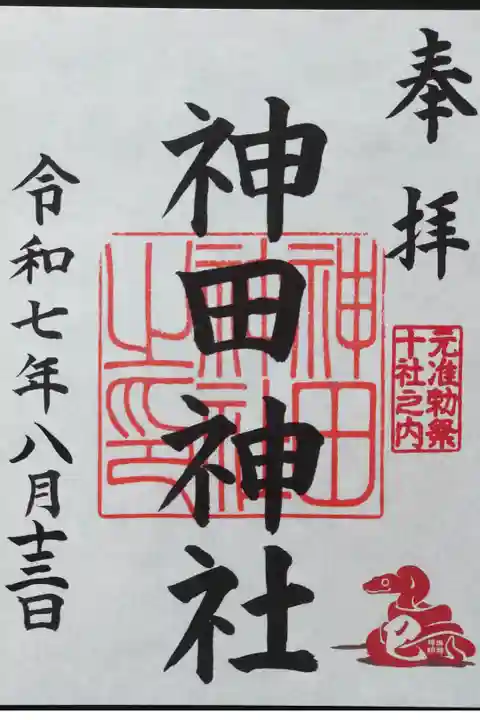 奉拝
元准勅祭
十社之内
巳
神田神社
神田
神社
之印
令和七年八月十三日